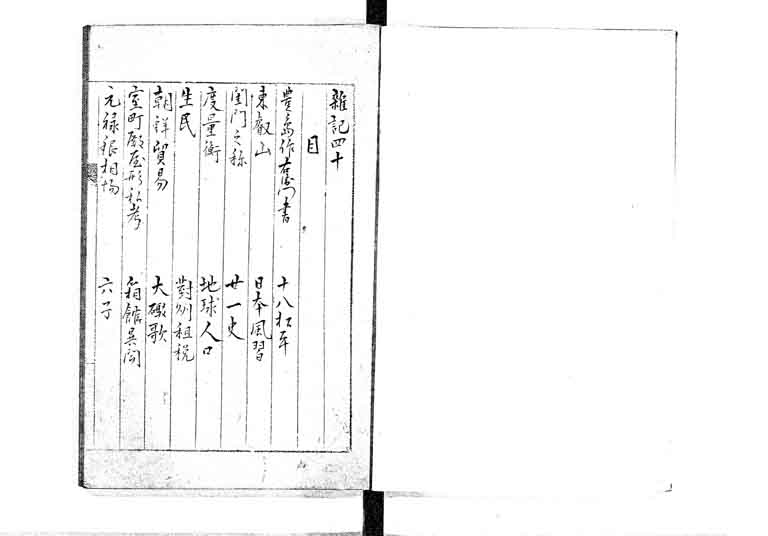 雑記四十
目
豊島作右衛門書 十八松平
東叡山 日本風習
閨門之称 廿一史
度量衡 地球人口
生民 対州租税
朝鮮貿易 大礮歌
室町殿屋形私考 箱館異聞
元禄銀相場 六子